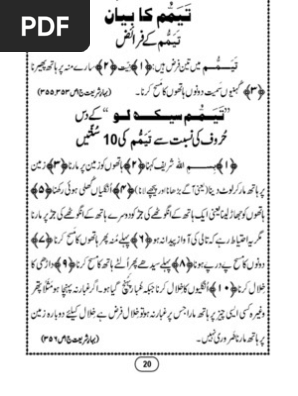 PDF
تَیَمُّم کا بیان
تَیَمُّم کے فرائض
تَیَمُّم میں تین فرض ہیں: ﴿۱﴾ نیّت ﴿۲﴾ سارے منہ پر ہاتھ پھیرنا
﴿۳﴾ کہنیوں سمیت دونوں ہاتھوں کا مسح کرنا۔ (بہارِ شریعت ج۱ ص ۳۵۳، ۳۵۵)
”تَیَمُّم سیکھ لو“ کے دس
حُروف کی نسبت سے تَیَمُّم کی 10 سنّتیں
﴿۱﴾ بسم اللہ شریف کہنا ﴿۲﴾ ہاتھوں کو زمین پر مارنا ﴿۳﴾ زمین
پر ہاتھ مار کر لوٹ دینا (یعنی آگے بڑھانا اور پیچھے لانا) ﴿۴﴾ اُنگلیاں کھلی ہوئی رکھنا ﴿۵﴾
ہاتھوں کو جھاڑ لینا یعنی ایک ہاتھ کے انگوٹھے کی جڑ کو دوسرے ہاتھ کے انگوٹھے کی جڑ پر مارنا
مگر یہ احتیاط رہے کہ تالی کی آواز پیدا نہ ہو ﴿۶﴾ پہلے منہ پھر ہاتھوں کا مسح کرنا ﴿۷﴾
دونوں کا مسح پے در پے ہونا ﴿۸﴾ پہلے سیدھے پھر اُلٹے ہاتھ کا مسح کرنا ﴿۹﴾ داڑھی کا
خلال کرنا ﴿۱۰﴾ اُنگلیوں کا خلال کرنا جبکہ غبار پہنچ گیا ہو۔ اگر غبار نہ پہنچا ہو مثلاً پتھر
وغیرہ کسی ایسی چیز پر ہاتھ مارا جس پر غبار نہ ہو تو خلال فرض ہے خلال کیلئے دوبارہ زمین
پر ہاتھ مارنا ضروری نہیں۔ (بہارِ شریعت ج۱ ص ۳۵۶)
20